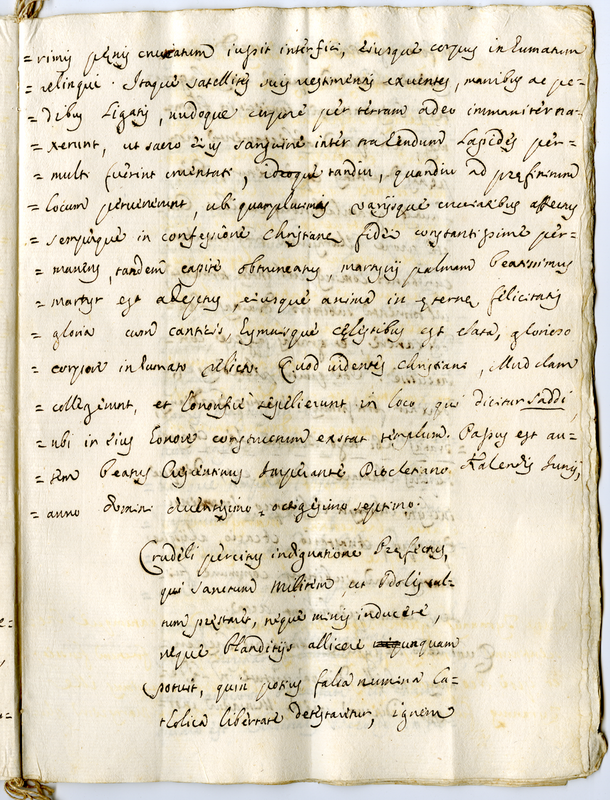 = rimis penis cruciatum iussit interfici, eiusque corpus inhumatum
= relinqui. Itaque satellites suis vestimentis exuentes, manibus ac pe-
= dibus ligatis, nudoque corpore per terram adeo immaniter tra-
= xerunt, ut sacro eius sanguine inter trahendum lapides per-
= multi fuerint cruentati, ideoque tandiu, quandiu ad præfinitum
= locum pervenerunt, ubi quamplurimis varijsque cruciatibus affectus
= semperque in confessione Christianæ fidei constantissime per-
= manens, tandem capite obtruncatus, martyrij palmam Beatissimus
= martyr est adeptus, eiusque anima in æternæ felicitatis
= gloria cum canticis, hymnisque cęlestibus est elata, glorioso
= corpore inhumato relicto. Quod videntes Christiani, illud clam
= collegerunt, et honorifice sepelierunt in loco qui dicitur Saddi,
= ubi in eius honore constructum extat templum. Passus est au-
= tem Beatus Imperante Diocletiano Kalendis Junij,
= anno Domini ducentesimo octogesimo septimo.
Crudeli percitus indignatione Præfectus,
qui Sanctum Militem, ut Idolis cul-
tum præstaret, neque minis inducere,
neque blanditijs allicere unquam
potuit, quin potius falsa numina Ca-
tholica libertate detestaretur, ignem